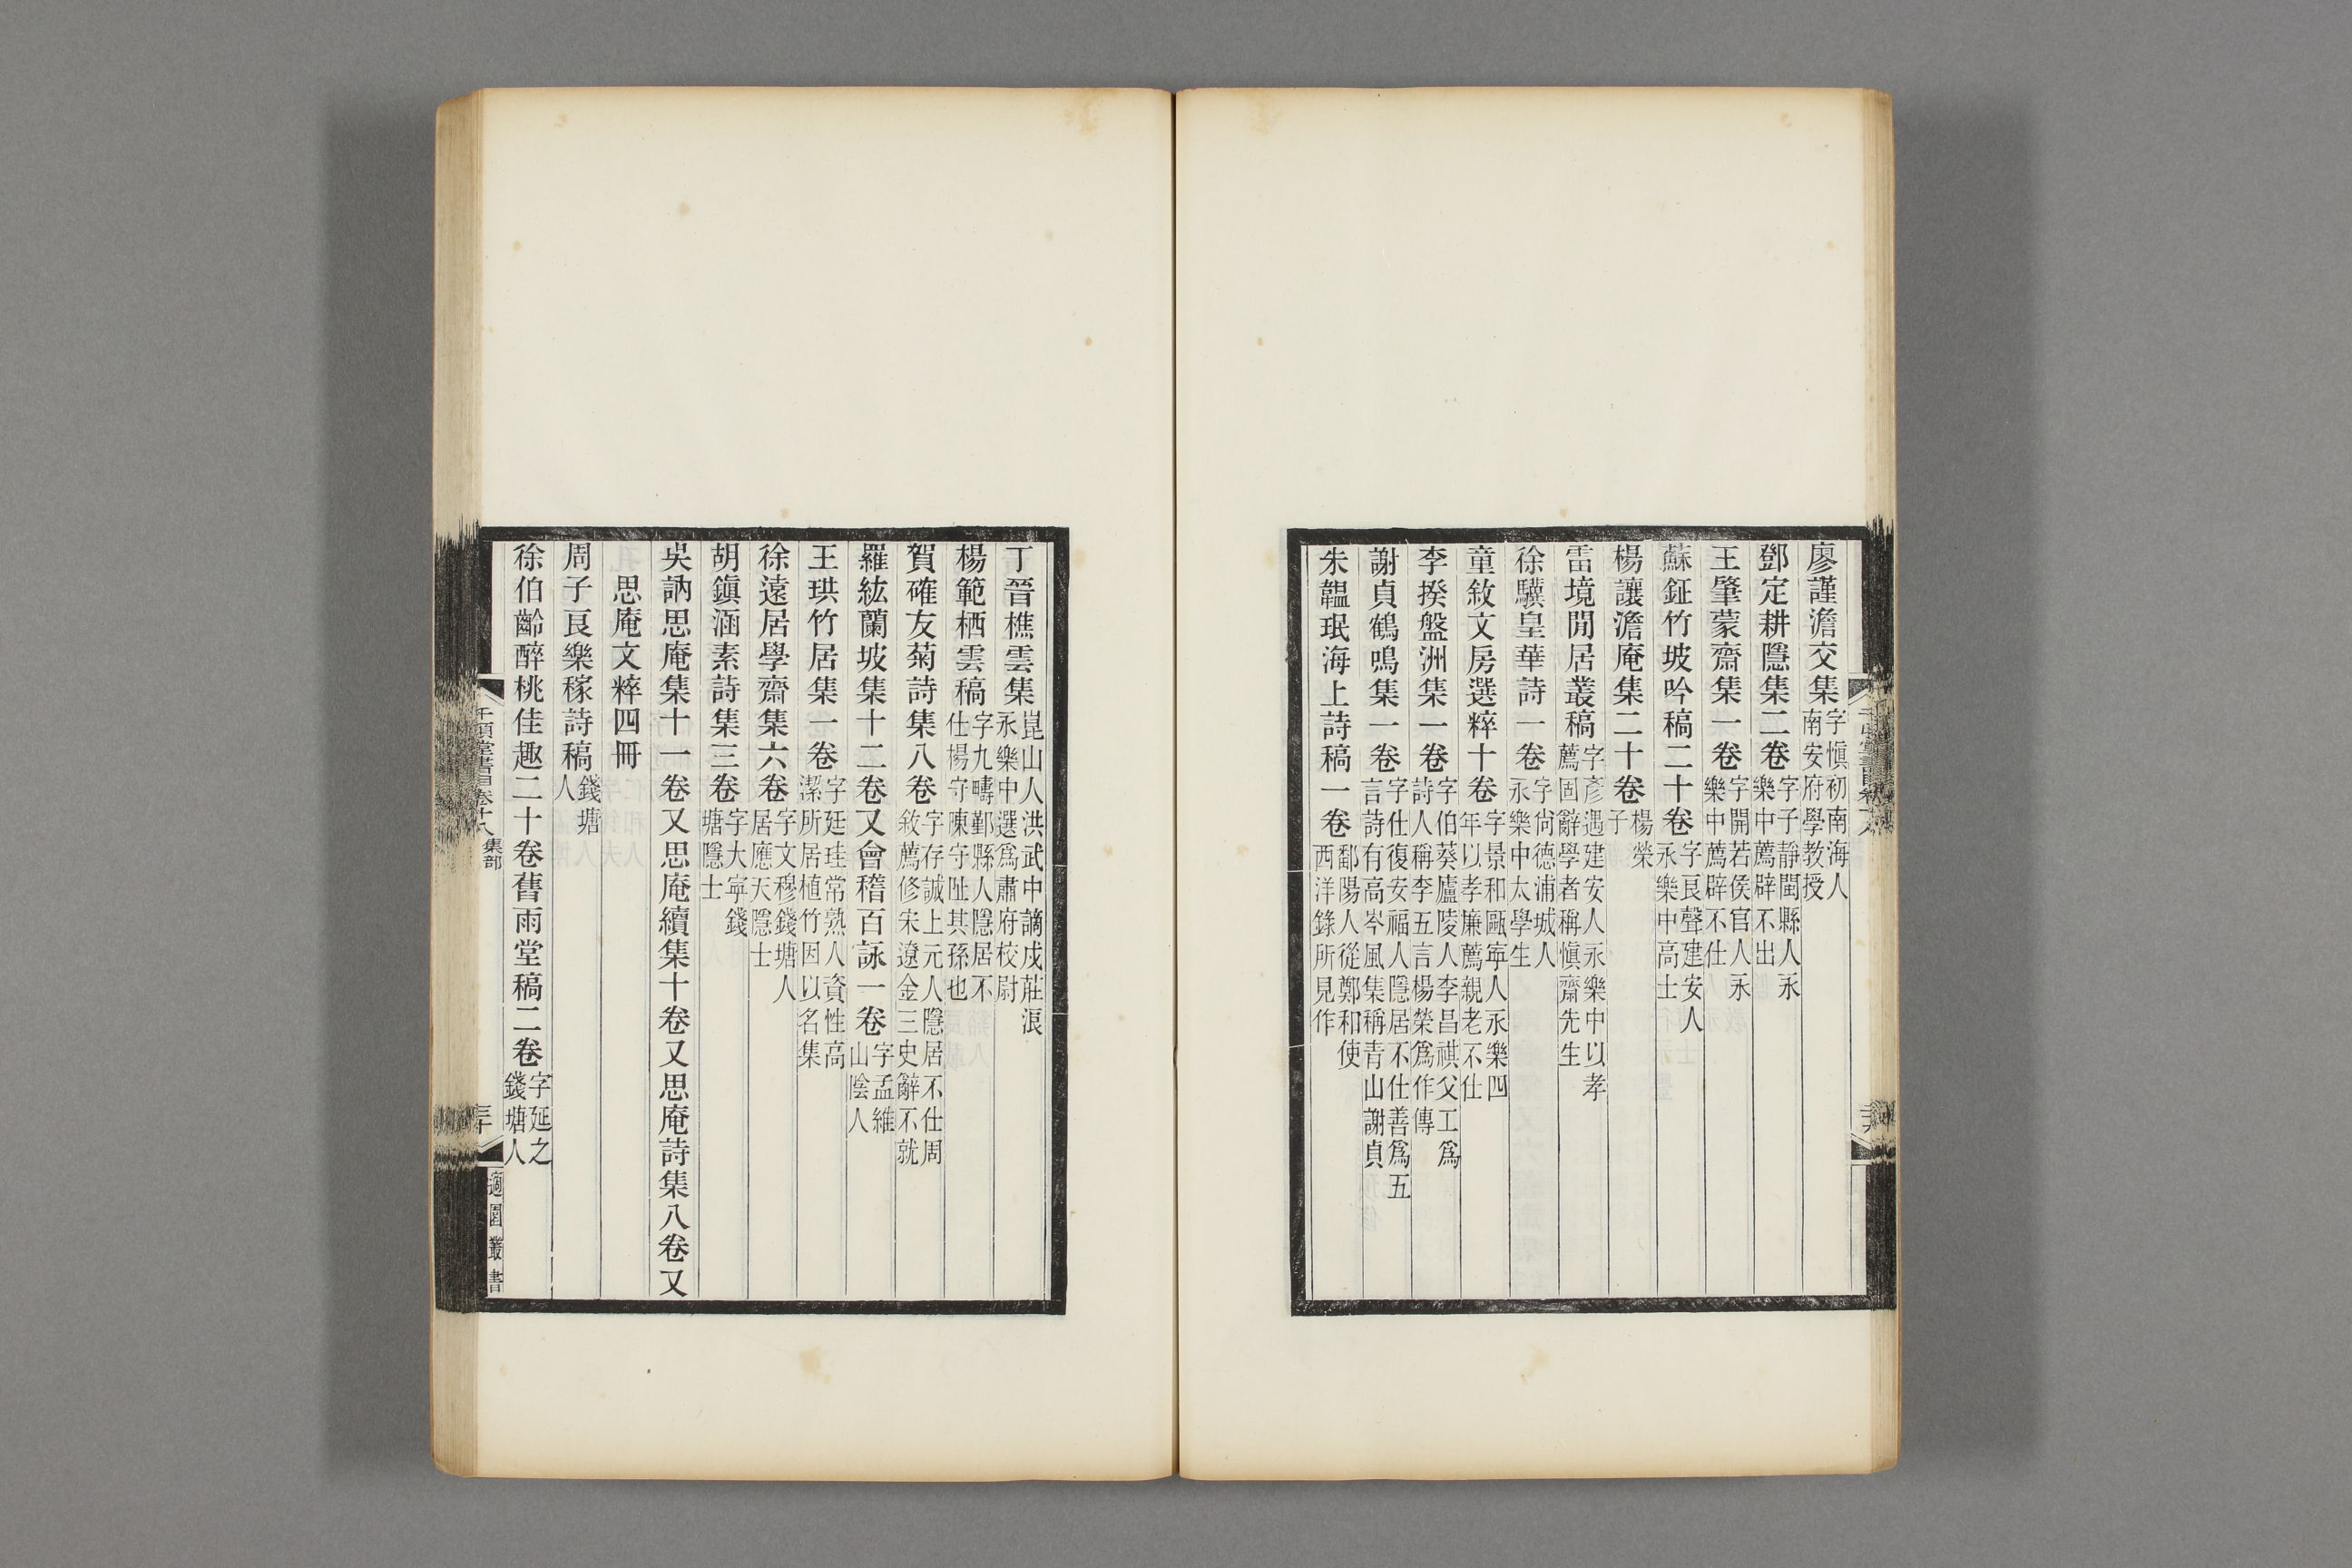 廖謹澹交集字愼初南海人南安府學教授
鄧定耕隱集二卷字子靜閩縣人永樂中薦辟不出
王肇蒙齋集一卷字開若侯官人永樂中薦辟不仕
蘇鉦竹坡吟稿二十卷字良聲建安人永樂中高士
楊讓澹庵集二十卷楊榮子
雷境閒居叢稿字彥遇建安人永樂中以孝薦固辭學者稱愼齋先生
徐驥皇華詩一卷字尙德浦城人永樂中太學生
童敘文房選粹十卷字景和甌寧人永樂四年以孝廉薦親老不仕
李揆盤洲集一卷字伯葵廬陵人李昌祺父工爲詩人稱李五言楊榮爲作傳
謝貞鶴鳴集一卷字仕復安福人隱居不仕善爲五言詩有高岑風集稱青山謝貞
朱韞珉海上詩稿一卷鄱陽人從鄭和使西洋錄所見作
丁晉樵雲集崑山人洪武中謫戍莊浪永樂中選爲肅府校尉
楊範栖雲稿字九疇鄞縣人隱居不仕楊守陳守阯其孫也
賀確友菊詩集八卷字存誠上元人隱居不仕周敘薦修宋遼金三史辭不就
羅紘蘭坡集十二卷又會稽百詠一卷字孟維山陰人
王珙竹居集一卷字廷珪常熟人資性高潔所居植竹因以名集
徐遠居學齋集六卷字文穆錢塘人居應天隱士
胡鎭涵素詩集三卷字大寧錢塘隱士
吳訥思庵集十一卷又思庵續集十卷又思庵詩集八卷又
思庵文粹四冊
周子良樂稼詩稿錢塘人
徐伯齡醉桃佳趣二十卷舊雨堂稿二卷字延之錢塘人
千頃堂書目卷十八 集部
三十
適園叢書